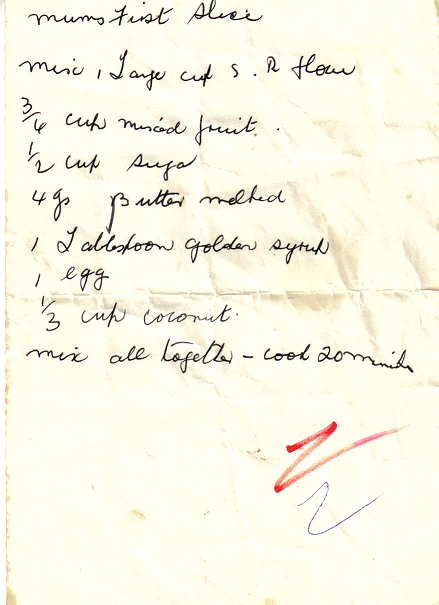 mums First Slice
mix 1 Large cup S. R flour
3/4 cup mixed fruit.
1/2 cup suga
4 Butter melted
1 Tablespoon golden syrup
1 egg
1/3 cup coconut.
mix all together - cook 20 minutes